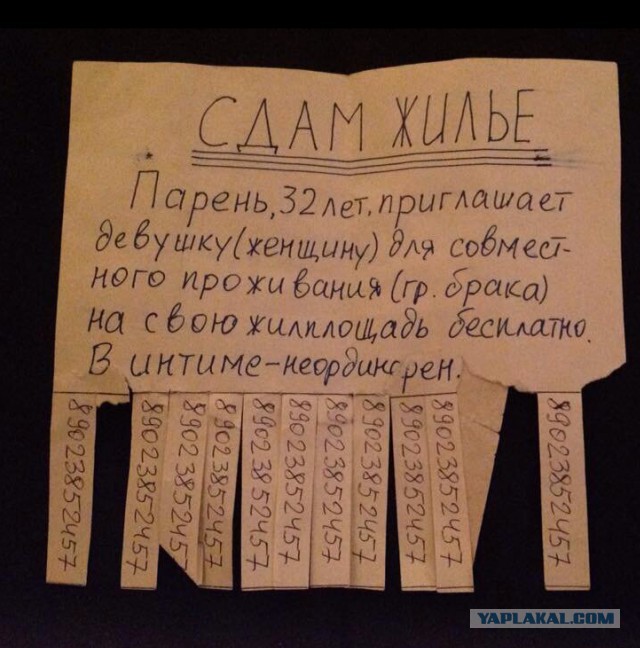 СДАМ ЖИЛЬЕ
Парень, 32 лет, приглашает
девушку (женщину) для совмест-
ного проживания (гр. брака)
на свою жилплощадь бесплатно.
В интиме-неординарен.
89023852457
89023852457
89023852457
89023852457
89023852457
89023852457
89023852457
89023852457
89023852457
89023852457
89023852457
YAPLAKAL.COM